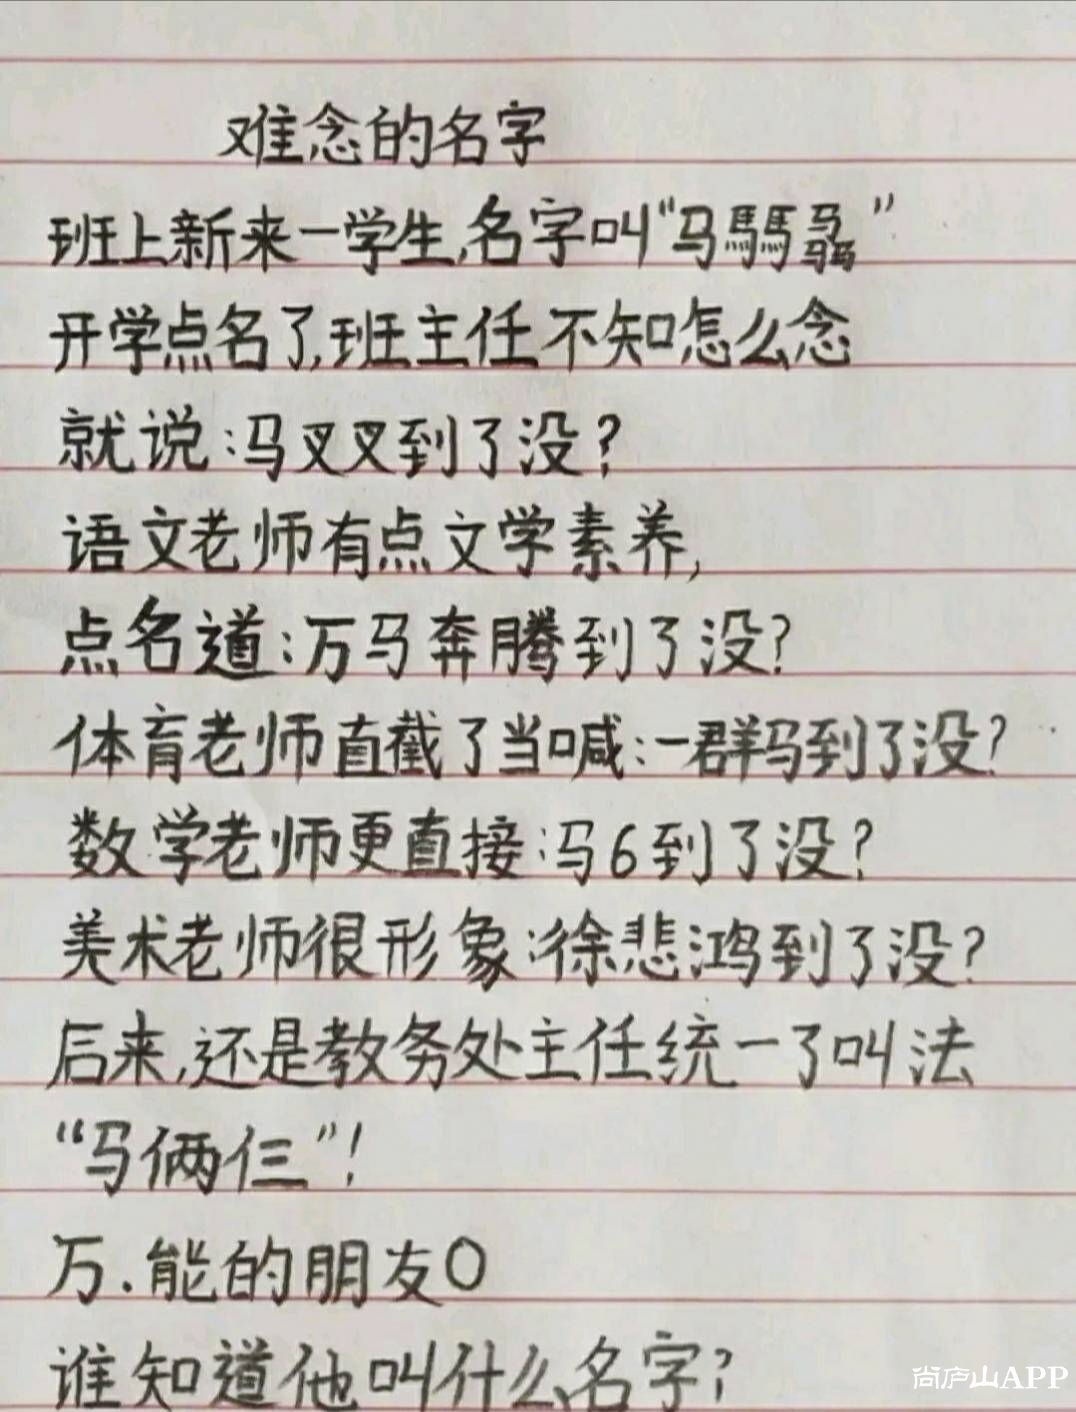 难念的名字
班上新来一学生,名字叫“马䮠骉”
开学点名了,班主任不知怎么念
就说:冯叉叉到了没?
语文老师有点文学素养,
点名道:万马奔腾到了没?
体育老师直截了当喊:一群马到了没?
数学老师更直接:冯6到了没?
美术老师很形象:徐悲鸿到了没?
后来,还是教务处主任统一了叫法
“马俩仨”!
万.能的朋友〇
谁知道他叫什么名字?
尚庐山APP